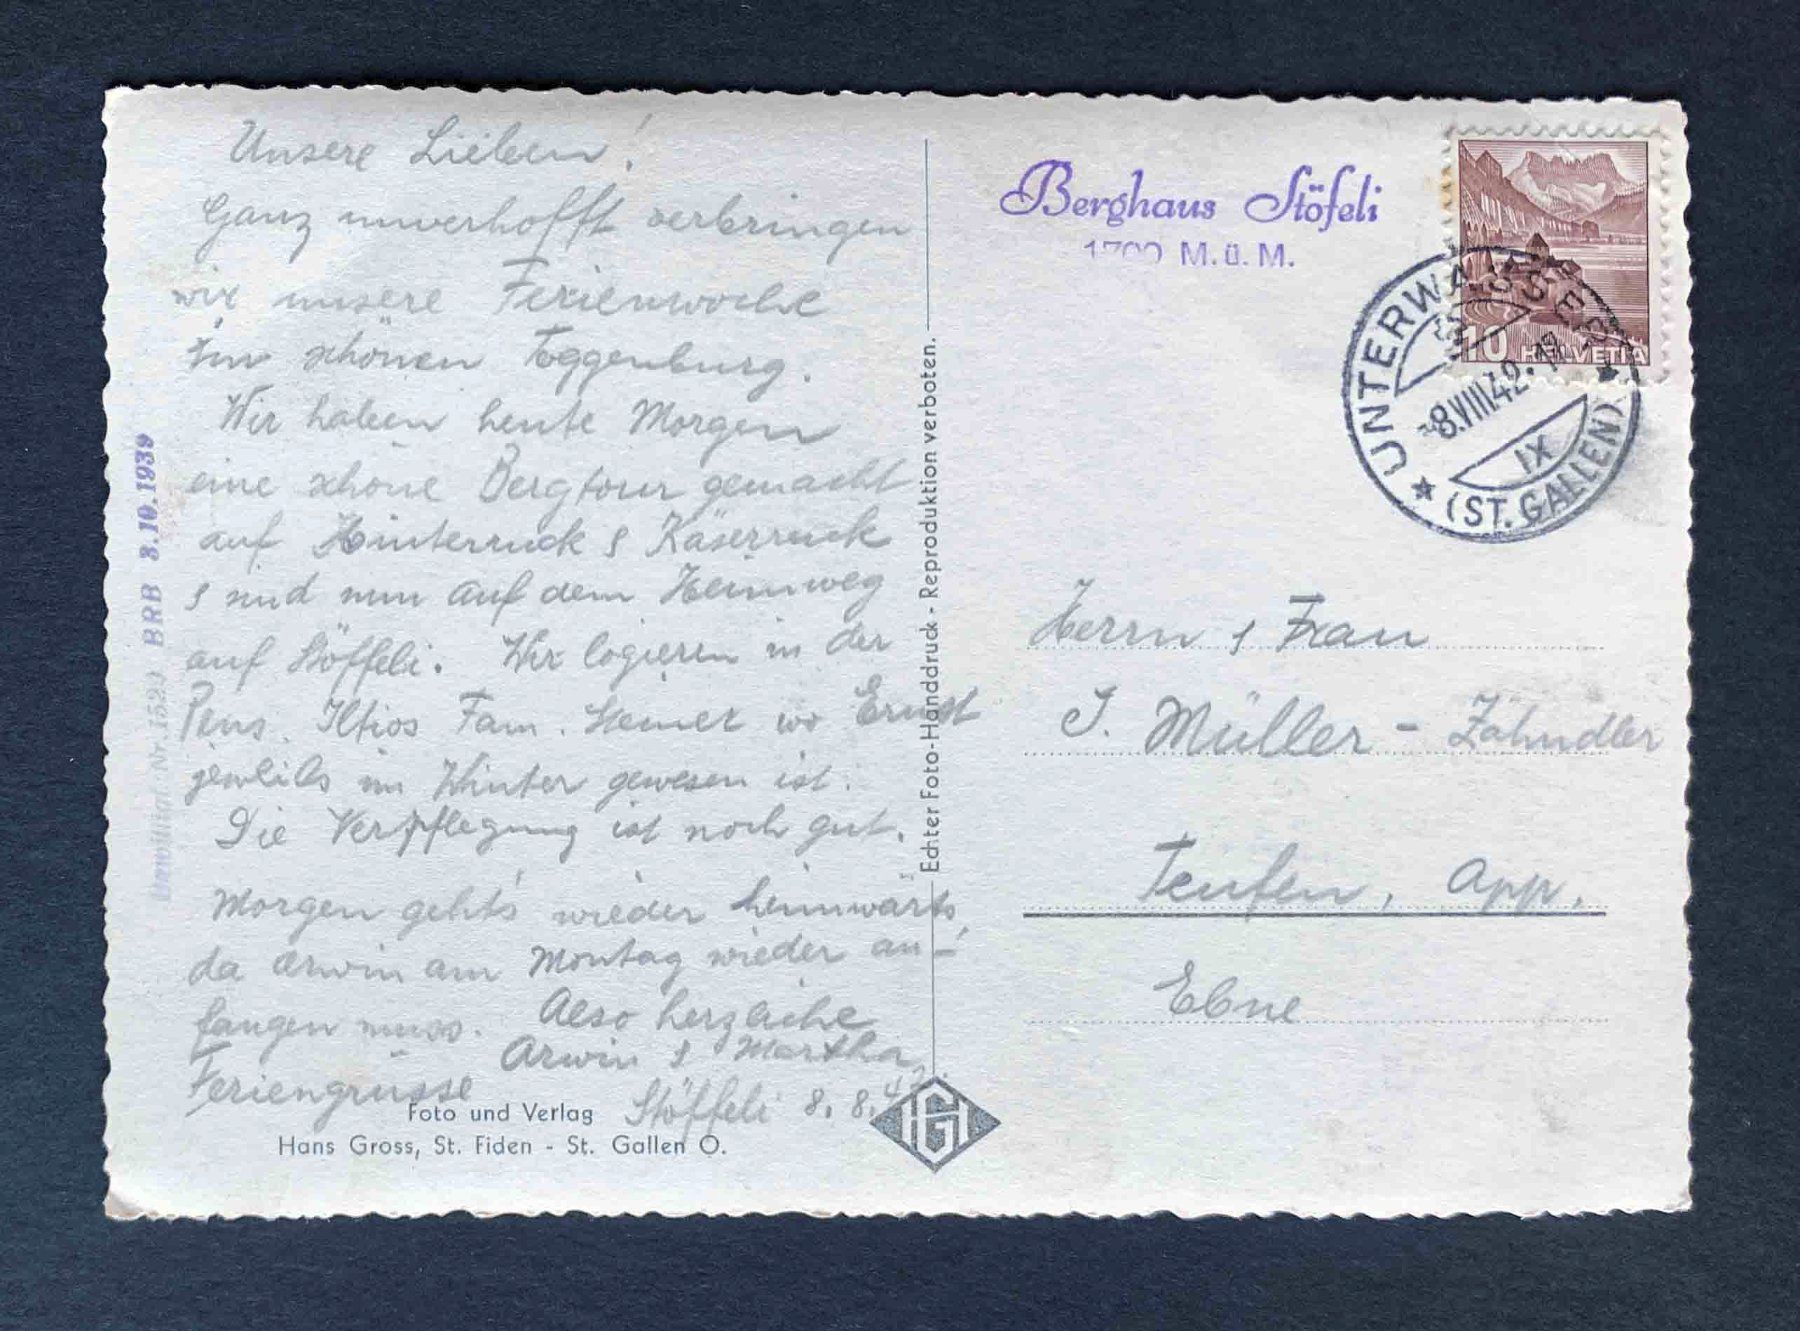 Unsere Lieben!
Ganz unverhofft verbringen
wir unsere Ferienwoche
im schönen Toggenburg.
Wir haben heute Morgen
eine schöne Bergtour gemacht
auf Hinterruck & Käserruck
& sind nun auf dem Heimweg
auf Stöffeli. Wir logieren in der
Pens. Iltios Fam. Steiner wo Ernst
jeweils im Winter gewesen ist.
Die Verpflegung ist noch gut.
Morgen geht's wieder heimwärts
da Arwin am Montag wieder an-
fangen muss. Also herzliche
Feriengrüsse Arwin & Martha
Stöffeli 8.8.42.
Foto und Verlag
Hans Gross, St. Fiden - St. Gallen O.
BRB 3.10.1939
Echter Foto-Handdruck - Reproduktion verboten.
HG
Berghaus Stöfeli
1700 M.ü.M.
10 HELVETIA
UNTERWASSER
-8.VIII.42.
IX
(ST. GALLEN)
Herrn & Frau
J. Müller - Zähndler
Teufen, App.
Ebne